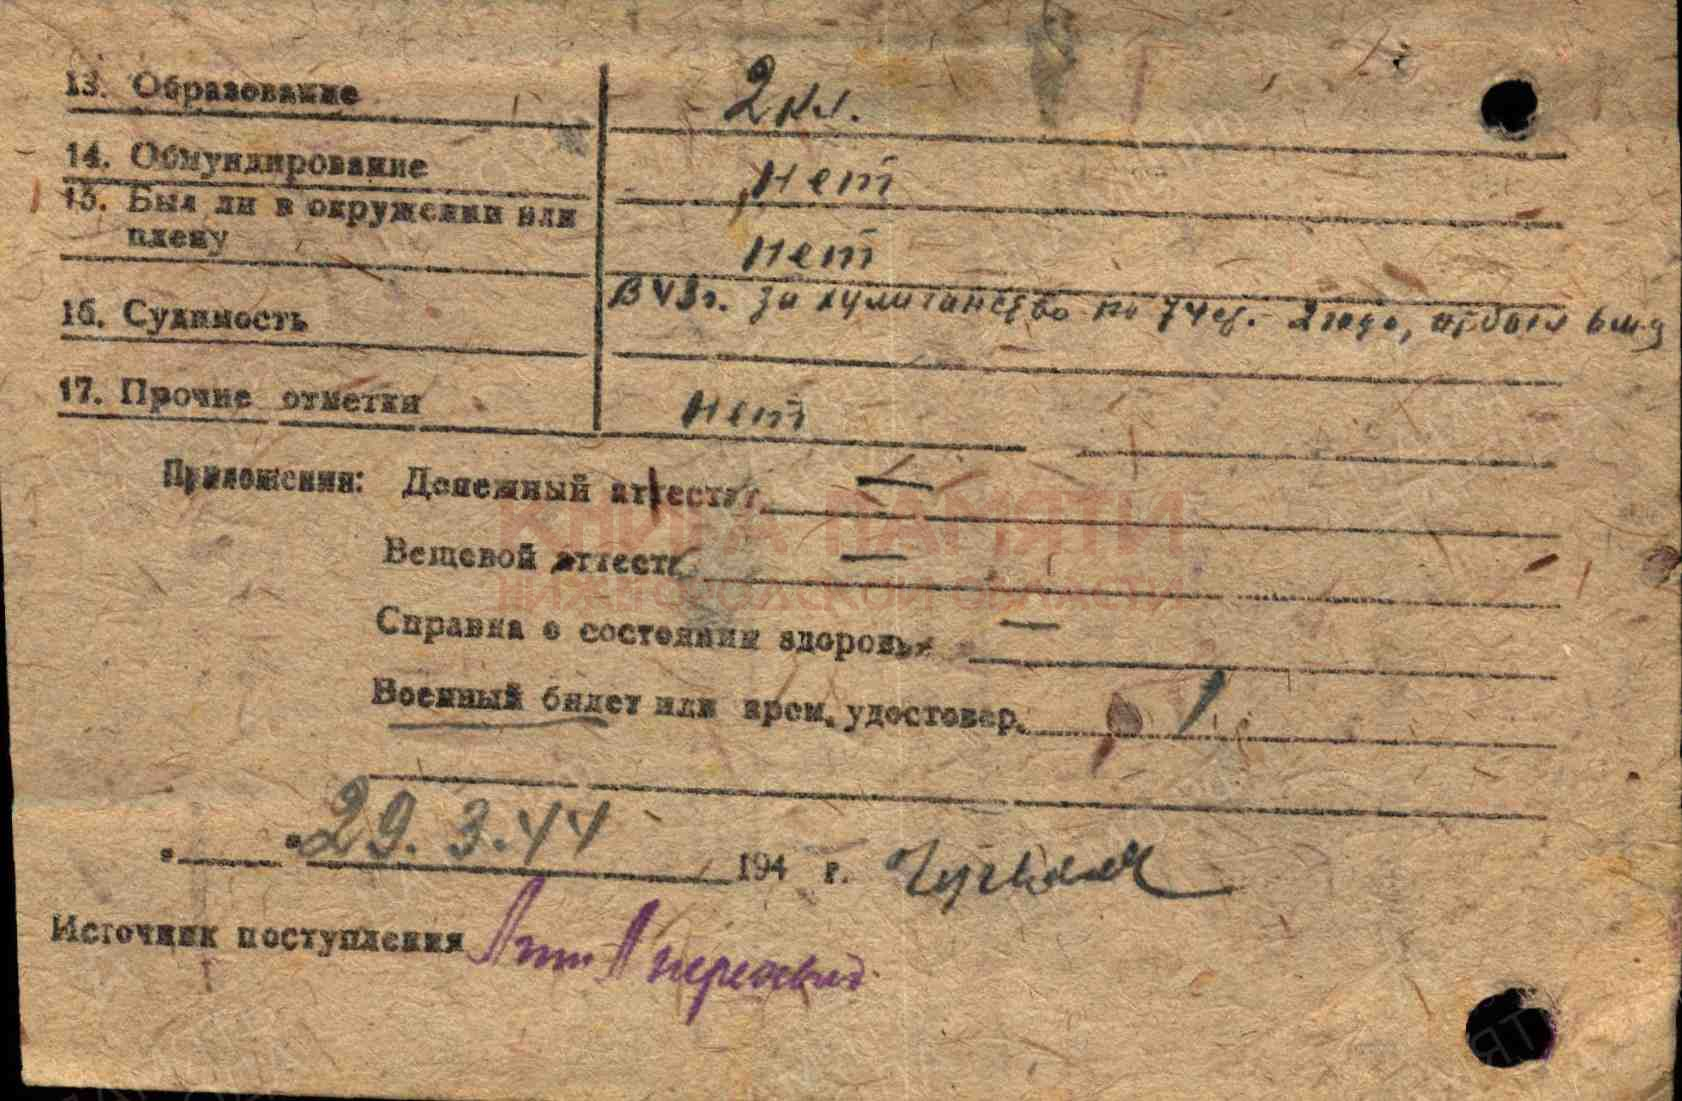 13. Образование 2 кл.
14. Обмундирование нет
15. Был ли в окружении или
плену нет
16. Судимость В 43 г. за хулиганство по 74 ст. 2 года, отбыл
17. Прочие отметки нет
Приложения: Денежный аттестат —
Вещевой аттест. —
Справка о состоянии здоровья —
Военный билет или врем. удостовер. 1
"29.3.44 194 г.
Источник поступления
КНИГА ПАМЯТИ
НИЖЕГОРОДСКОЙ ОБЛАСТИ